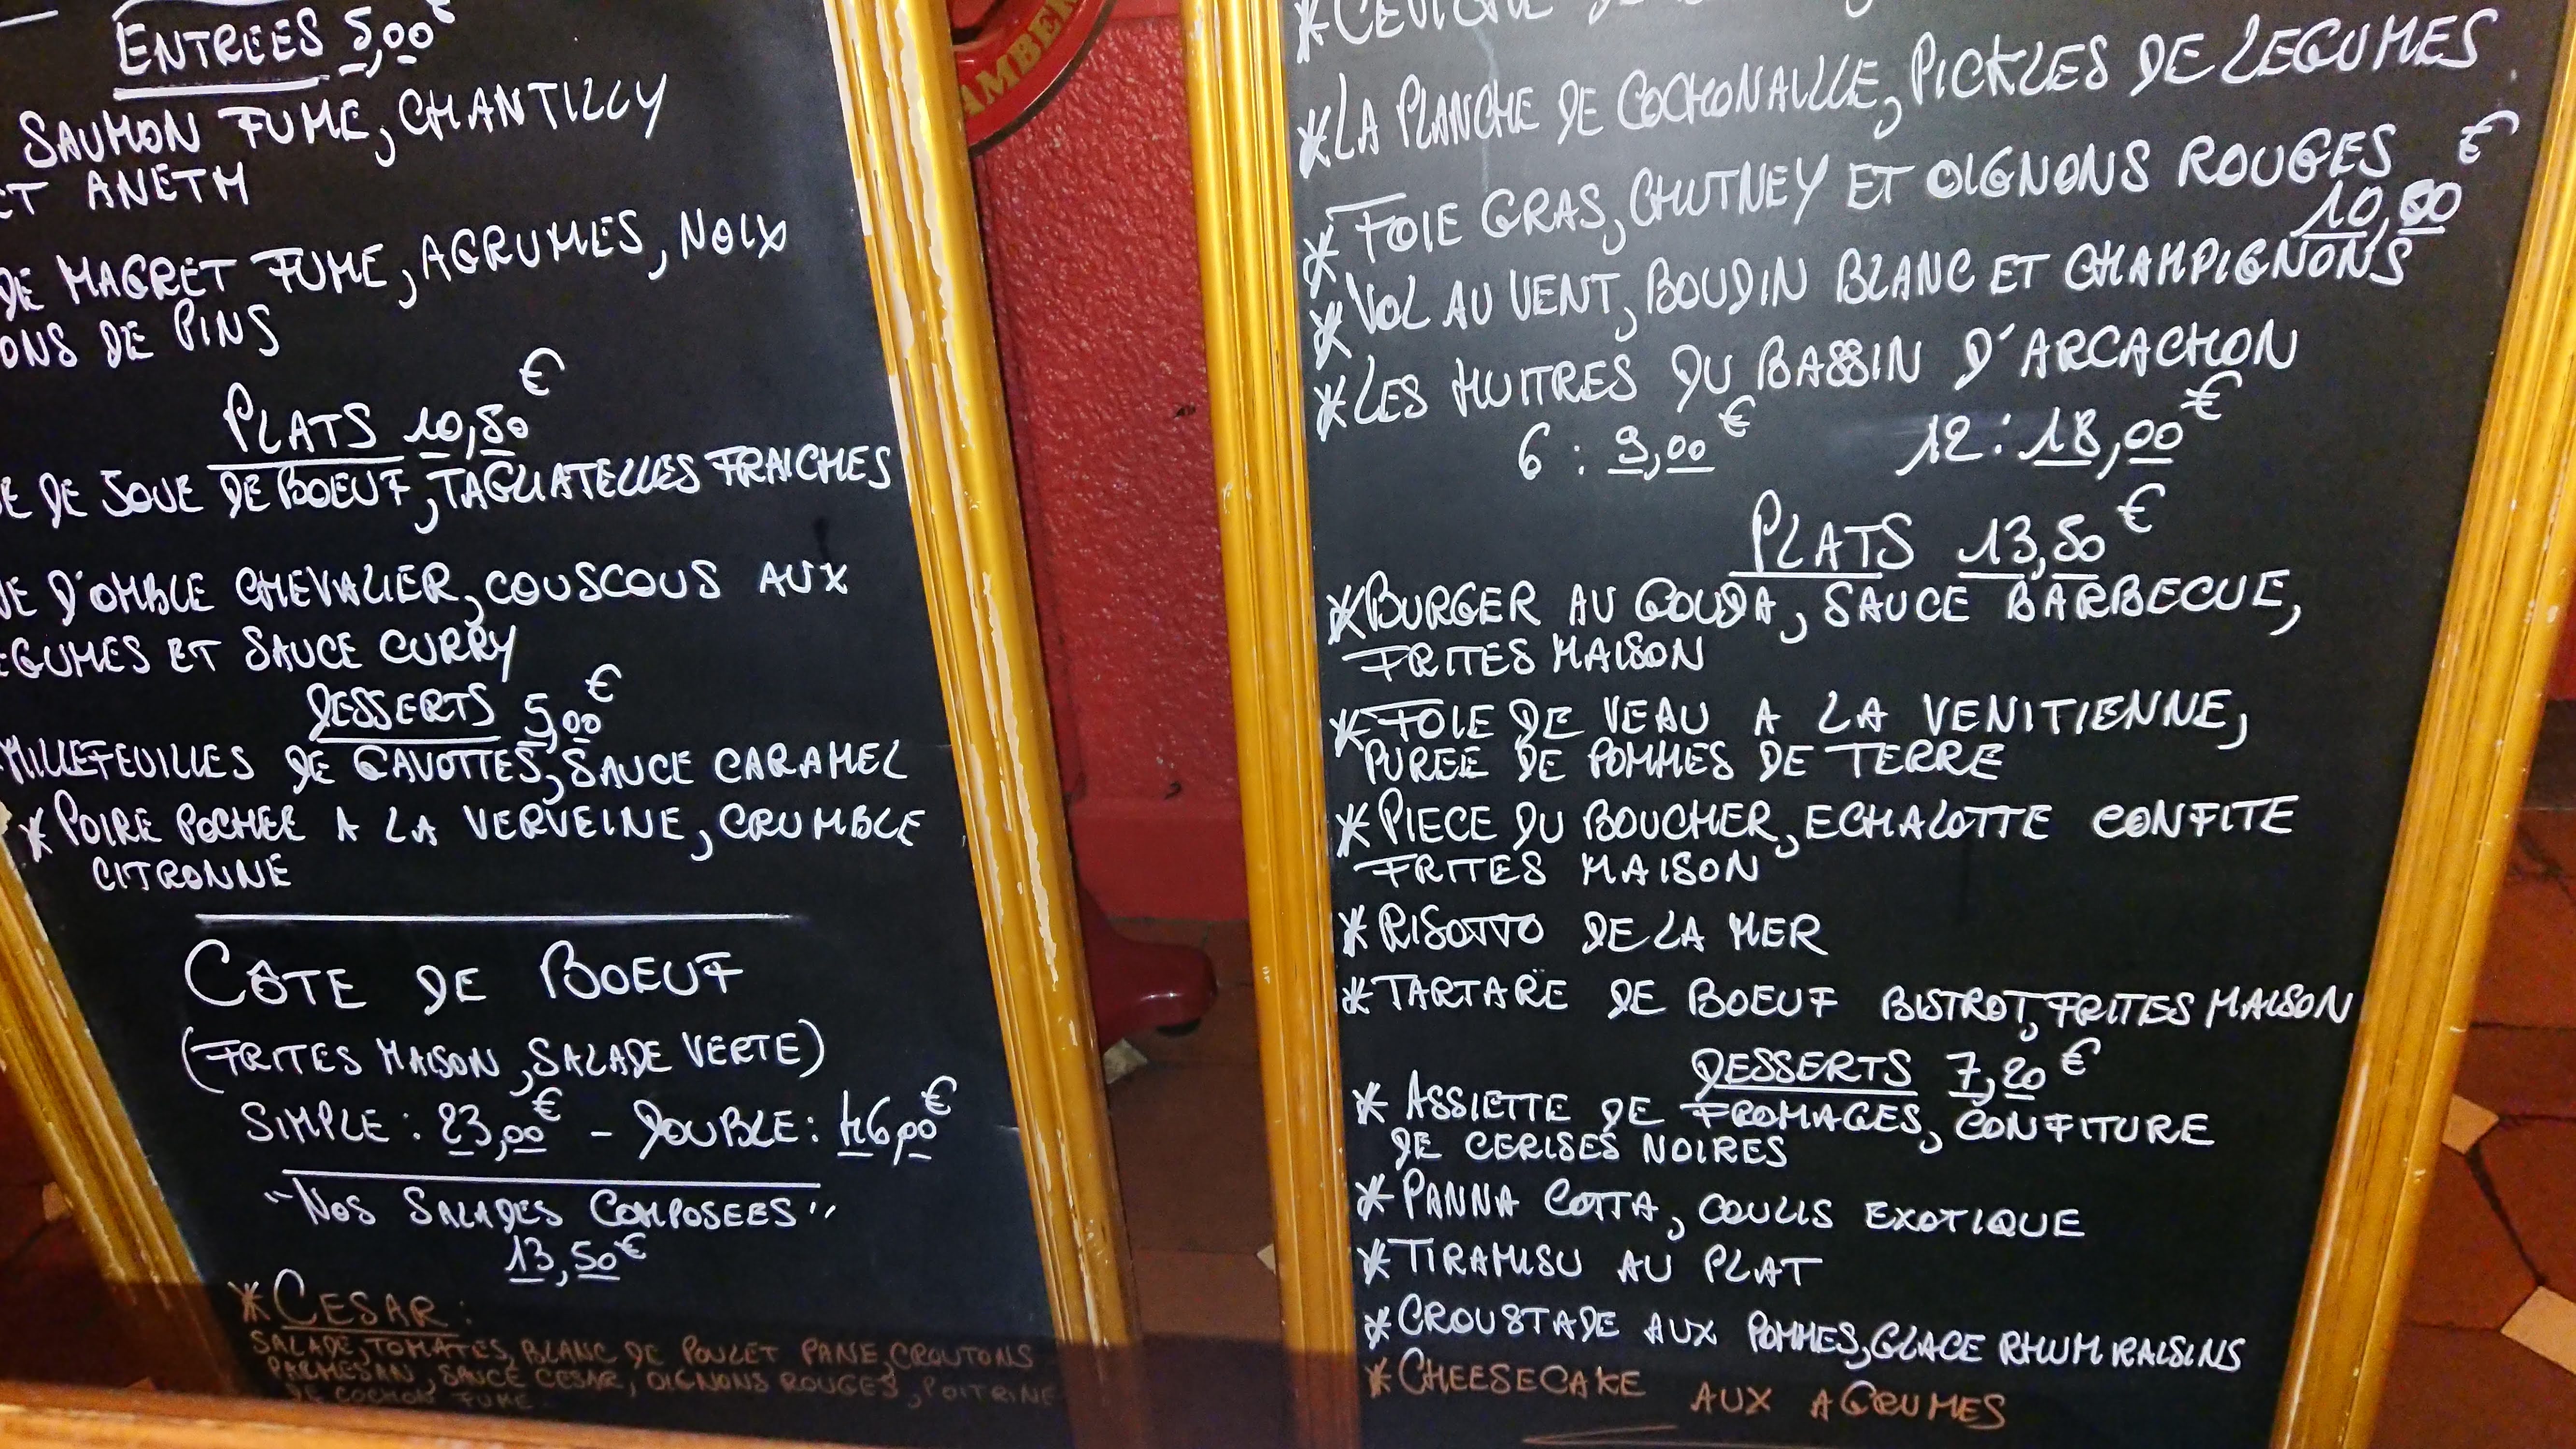 ENTREES 5,00€
SAUMON FUME, CHANTILLY
ET ANETH
DE MAGRET FUME, AGRUMES, NOIX
ONS DE PINS
PLATS 10,80€
E DE JOUE DE BOEUF, TAGLIATELLES FRAICHES
D'OMBLE CHEVALIER, COUSCOUS AUX
EGUMES ET SAUCE CURRY
DESSERTS 5,00€
MILLEFEUILLES DE GAVOTTES, SAUCE CARAMEL
*POIRE POCHEE A LA VERVEINE, CRUMBLE
CITRONNE
CÔTE DE BOEUF
(FRITES MAISON, SALADE VERTE)
SIMPLE : 23,00€ - DOUBLE : 46,00€
"NOS SALADES COMPOSEES"
13,50€
*CESAR :
SALADE, TOMATES, BLANC DE POULET PANE, CROUTONS
PARMESAN, SAUCE CESAR, OIGNONS ROUGES, POITRINE
DE COCHON FUME.
AMBER
*LA PLANCHE DE COCHONAILLE, PICKLES DE LEGUMES.
*FOIE GRAS, CHUTNEY ET OIGNONS ROUGES €
10,80
*VOL AU VENT, BOUDIN BLANC ET CHAMPIGNONS
*LES HUITRES DU BASSIN D'ARCACHON
6 : 9,00€ 12 : 18,00€
PLATS 13,50€
*BURGER AU GOUDA, SAUCE BARBECUE,
FRITES MAISON
*FOIE DE VEAU A LA VENITIENNE,
PUREE DE POMMES DE TERRE
*PIECE DU BOUCHER, ECHALOTTE CONFITE
FRITES MAISON
*RISOTTO DE LA MER
*TARTARE DE BOEUF BISTROT, FRITES MAISON
DESSERTS 7,20€
*ASSIETTE DE FROMAGES, CONFITURE
DE CERISES NOIRES
*PANNA COTTA, COULIS EXOTIQUE
*TIRAMISU AU PLAT
*CROUSTADE AUX POMMES, GLACE RHUM RAISINS
*CHEESECAKE AUX AGRUMES